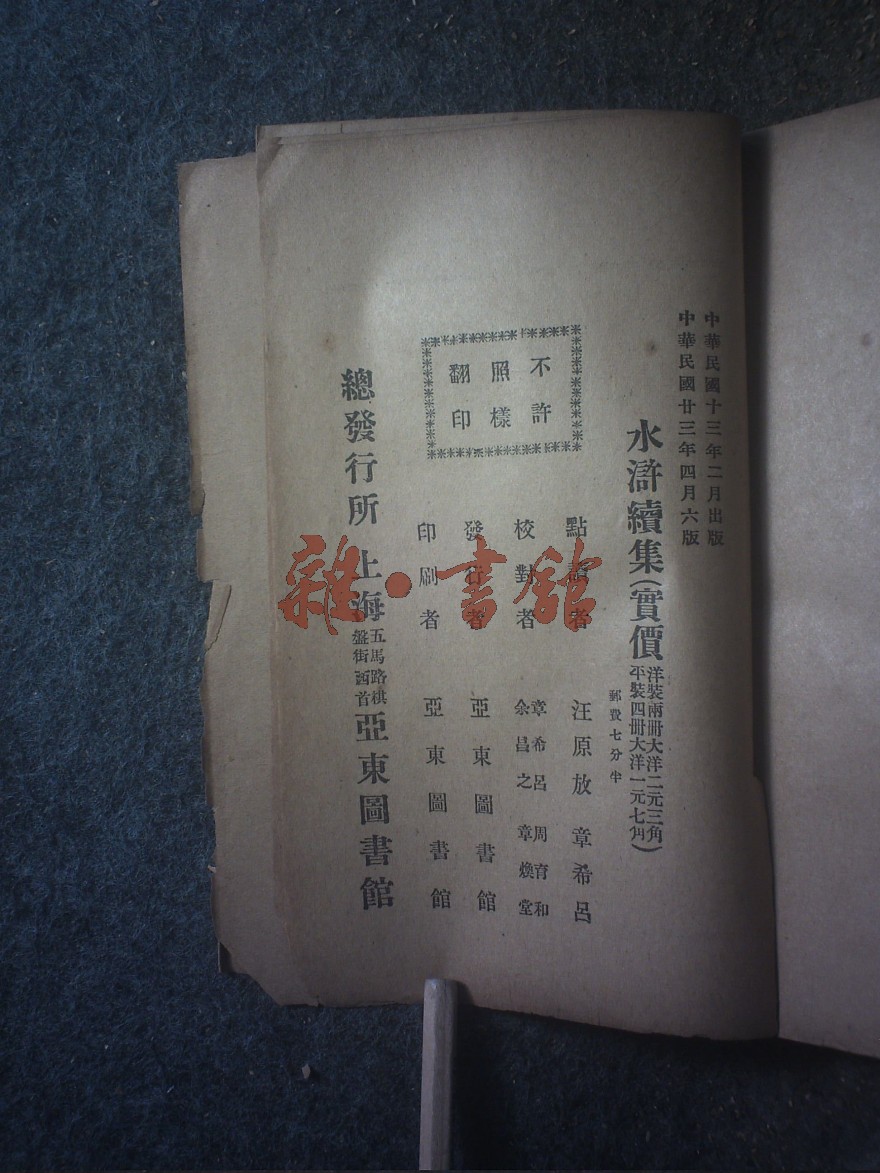 中華民國十三年二月出版
中華民國廿三年四月六版
水滸續集(實價
洋裝兩冊大洋二元三角
平裝四冊大洋一元七角)
郵費七分半
不許
照樣
翻印
點讀者 汪原放 章希呂
校對者 章希呂 周育和
余昌之 章煥堂
發行者 亞東圖書館
印刷者 亞東圖書館
總發行所 上海
五馬路棋
盤街西首
亞東圖書館
雜·書館